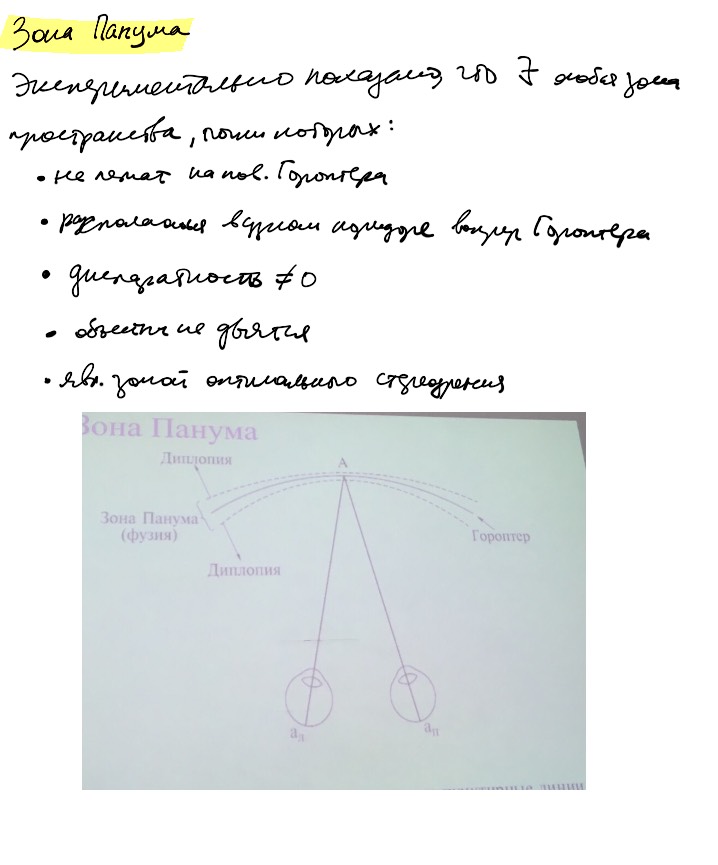 Зона Панума
Экспериментально показано, что ∃ особая зона
пространства, точки которых:
• не лежат на пов. Гороптера
• располагаются в узком коридоре вокруг Гороптера
• диспаратность ≠ 0
• объекты не двоятся
• явл. зоной оптимального стереозрения
Зона Панума
Диплопия
А
Зона Панума
(фузия)
Гороптер
Диплопия
aл
aп
линии